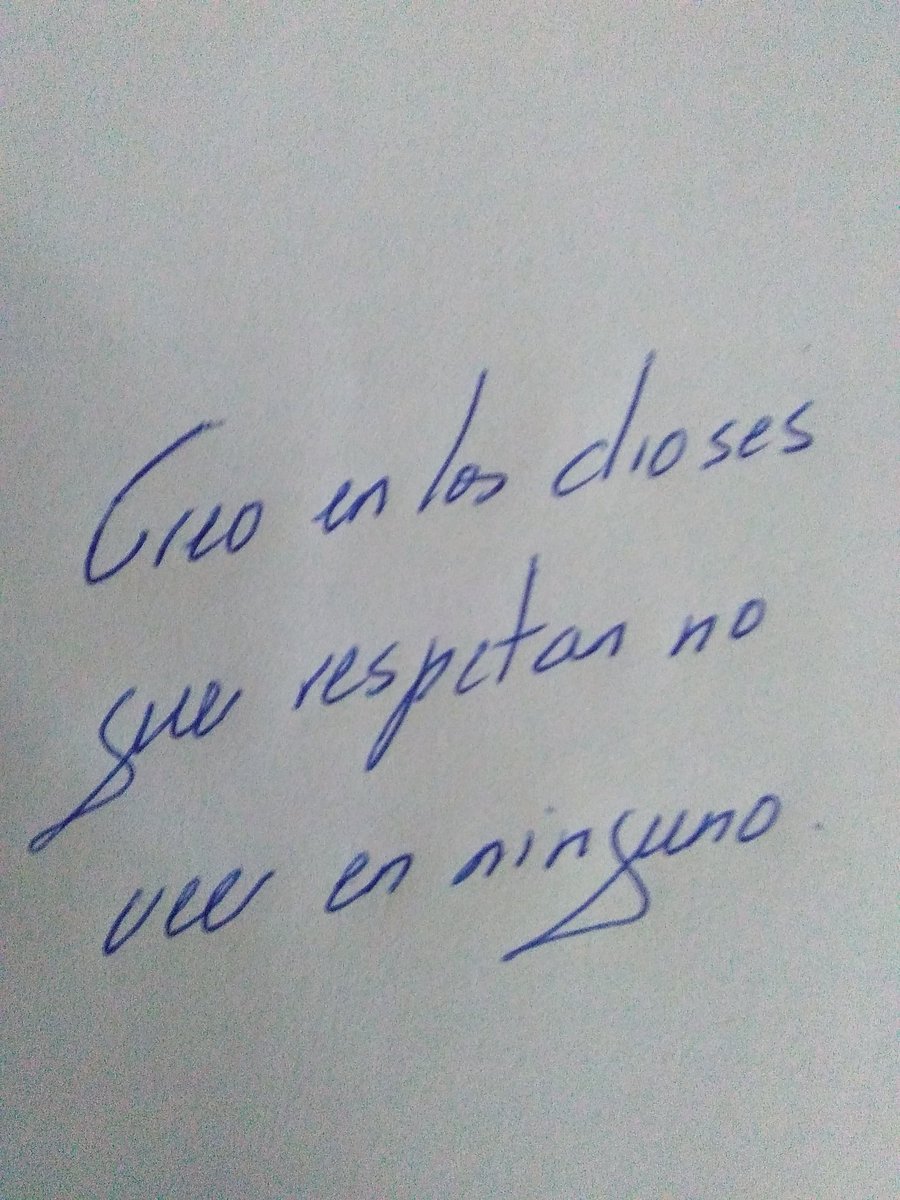 Creo en los dioses
que respetan no
veer en ninguno.